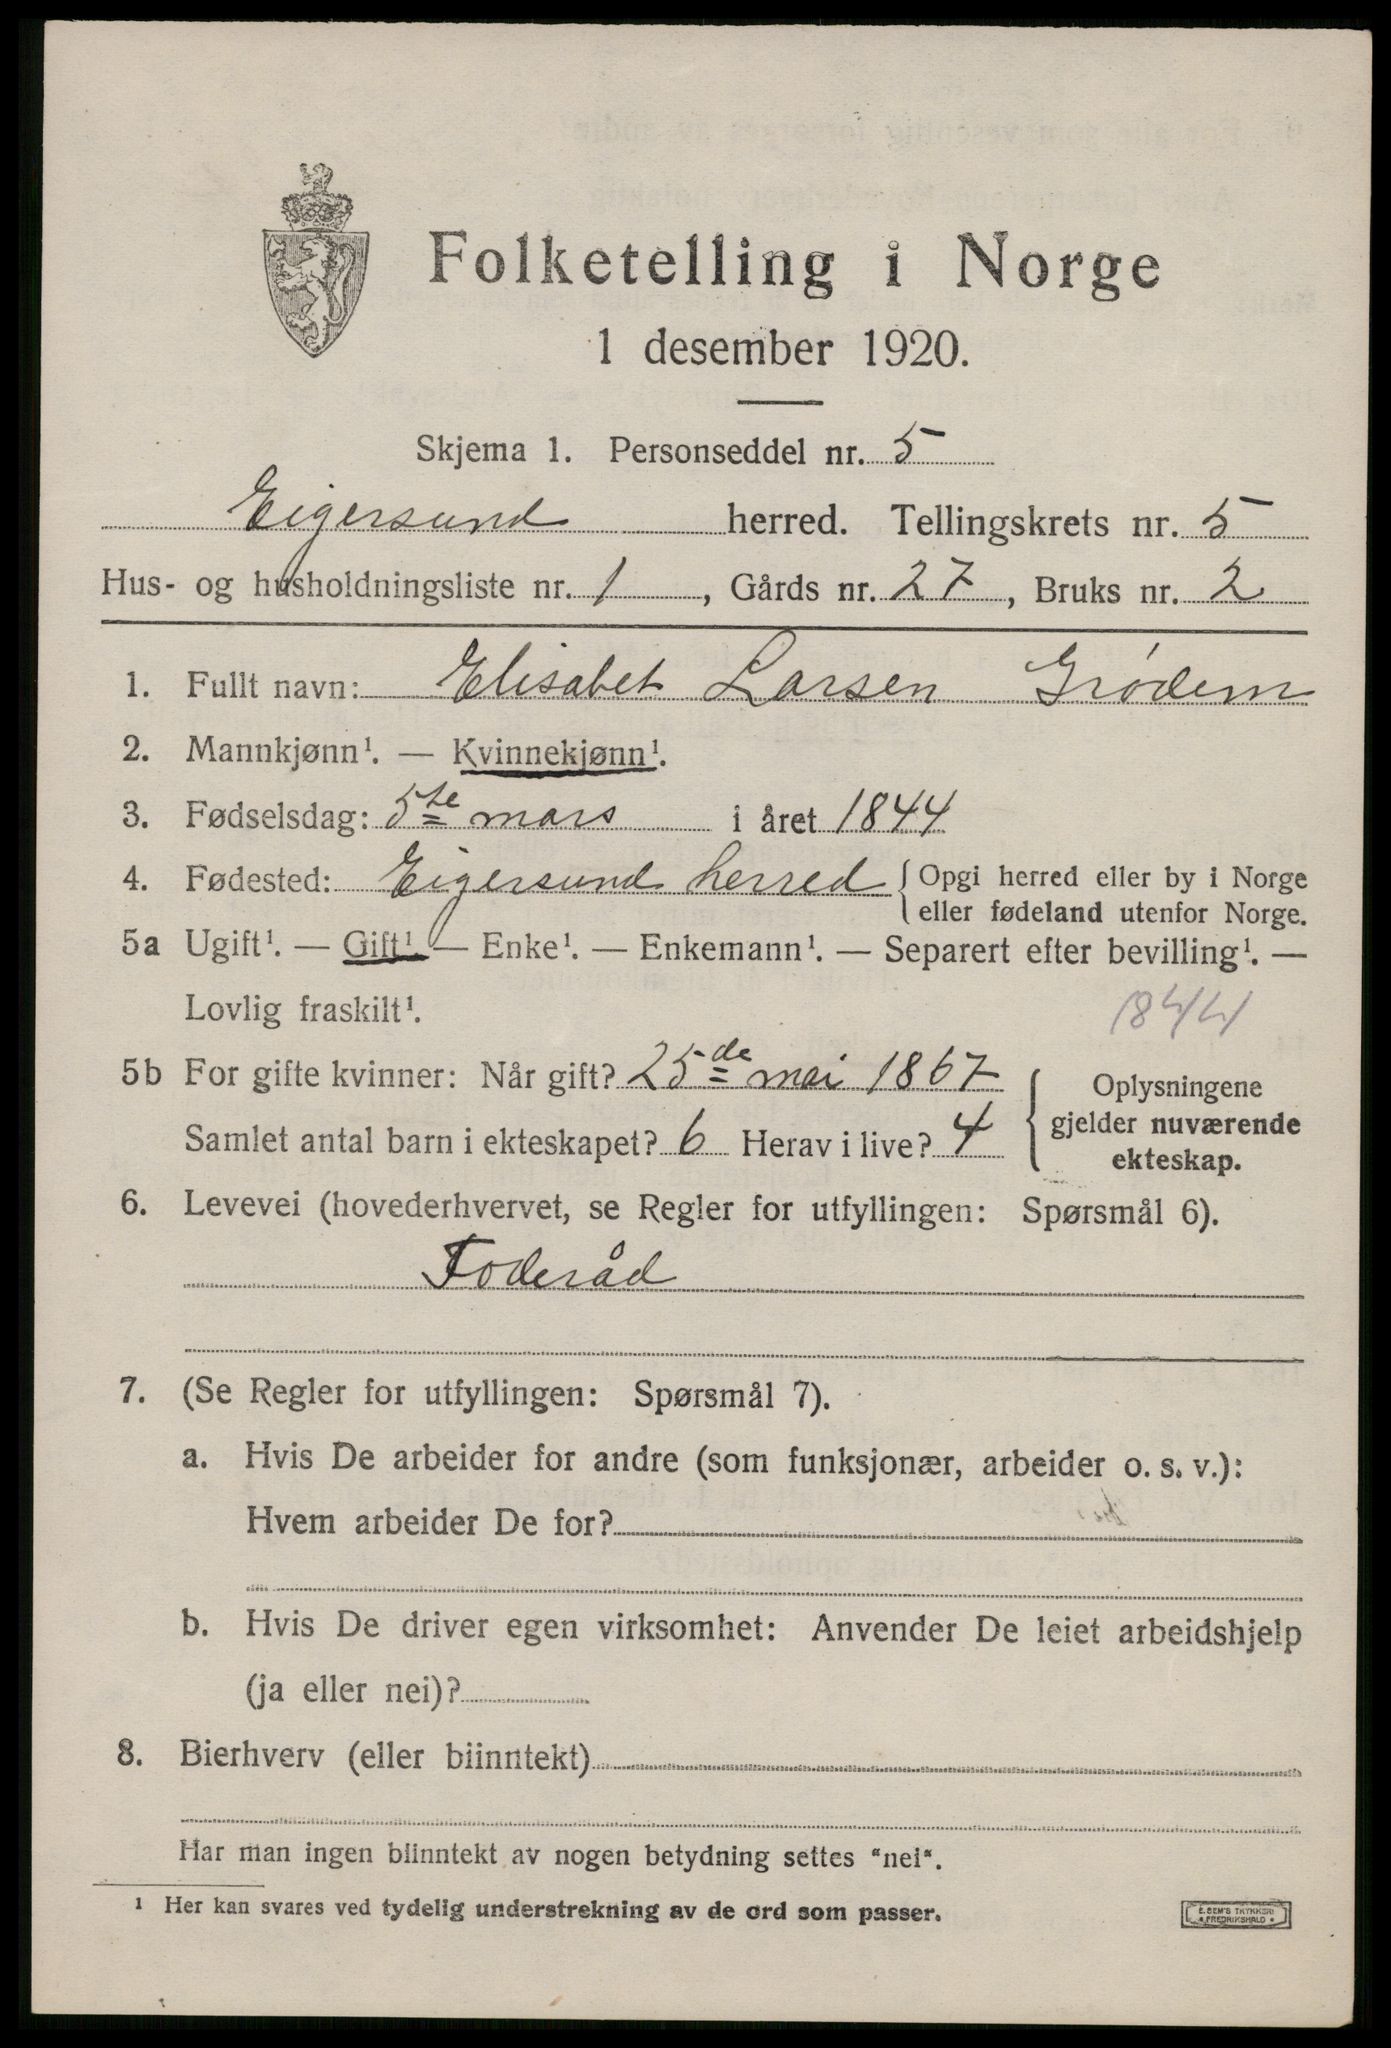 Folketelling i Norge
1 desember 1920.
Skjema 1. Personseddel nr. 5
Eigersund herred. Tellingskrets nr. 5
Hus- og husholdningsliste nr. 1, Gårds nr. 27, Bruks nr. 2
1. Fullt navn: Elisabet Larsen Grødem
2. Mannkjønn¹. — Kvinnekjønn¹.
3. Fødselsdag: 5te mars i året 1844
4. Fødested: Eigersund herred { Opgi herred eller by i Norge
eller fødeland utenfor Norge.
5a Ugift¹. — Gift¹. — Enke¹. — Enkemann¹. — Separert efter bevilling¹. —
Lovlig fraskilt¹. 1844
5b For gifte kvinner: Når gift? 25de mai 1867
Samlet antal barn i ekteskapet? 6 Herav i live? 4
{ Oplysningene
gjelder nuværende
ekteskap.
6. Levevei (hovederhvervet, se Regler for utfyllingen: Spørsmål 6).
Foderåd
7. (Se Regler for utfyllingen: Spørsmål 7).
a. Hvis De arbeider for andre (som funksjonær, arbeider o. s. v.):
Hvem arbeider De for?
b. Hvis De driver egen virksomhet: Anvender De leiet arbeidshjelp
(ja eller nei)?
8. Bierhverv (eller biinntekt)
Har man ingen biinntekt av nogen betydning settes "nei".
¹ Her kan svares ved tydelig understrekning av de ord som passer.
E. SEM'S TRYKKERI
FREDRIKSHALD